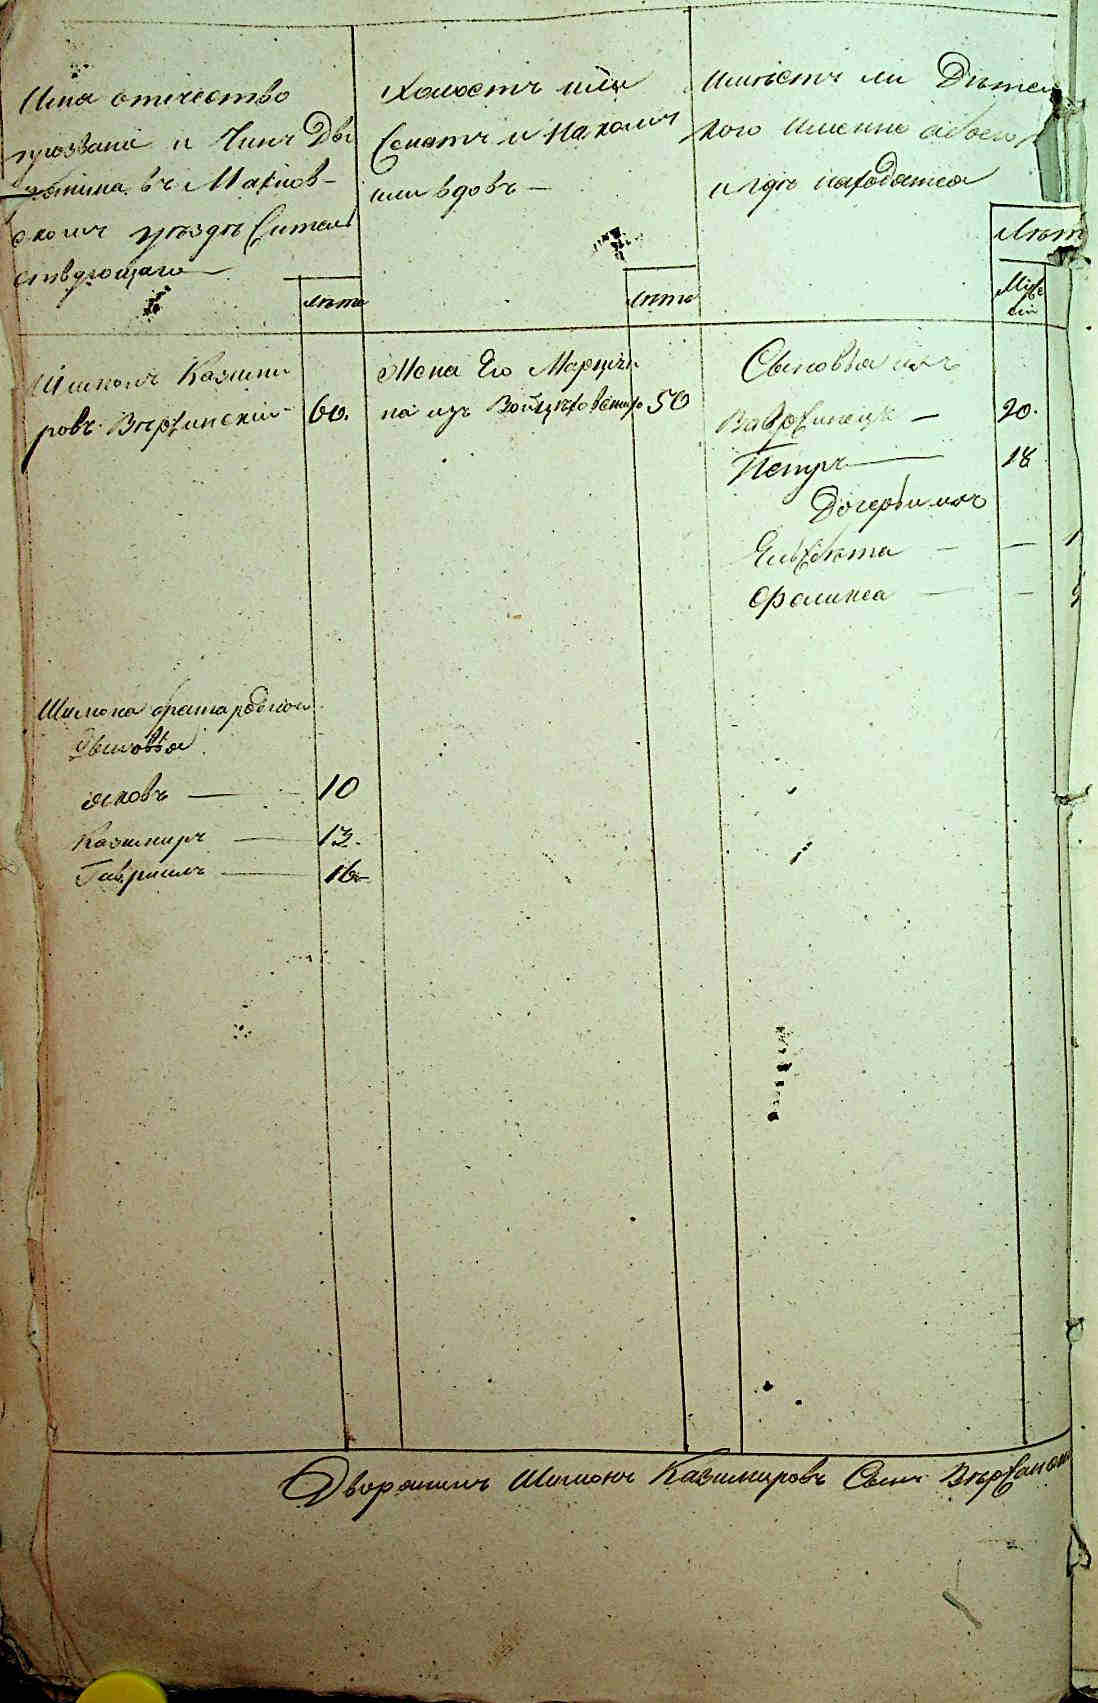 Имя отечество
прозваніе и Чинъ Дво
рянина въ Махнов-
скомъ уездѣ Жител
ствующаго
лѣта
Холостъ или
Женатъ и На комъ
или вдовъ —
лѣта
Имѣетъ ли Дѣтей
кого Именно
и гдѣ находятся
Лѣта
Шимонъ Казими
ровъ Вержбинскій
60.
Жена Его Марціа
на изъ Войцѣховскихъ
50
Сыновья ихъ
Вавржинецъ —
20.
Петръ —
18
Дочери ихъ
Елжбѣта — —
Францка — —
Шимона брата роднаго
Сыновья
Яковъ —
10
Казимиръ —
13.
Гавріилъ —
16
Дворянинъ Шимонъ Казимировъ Сынъ